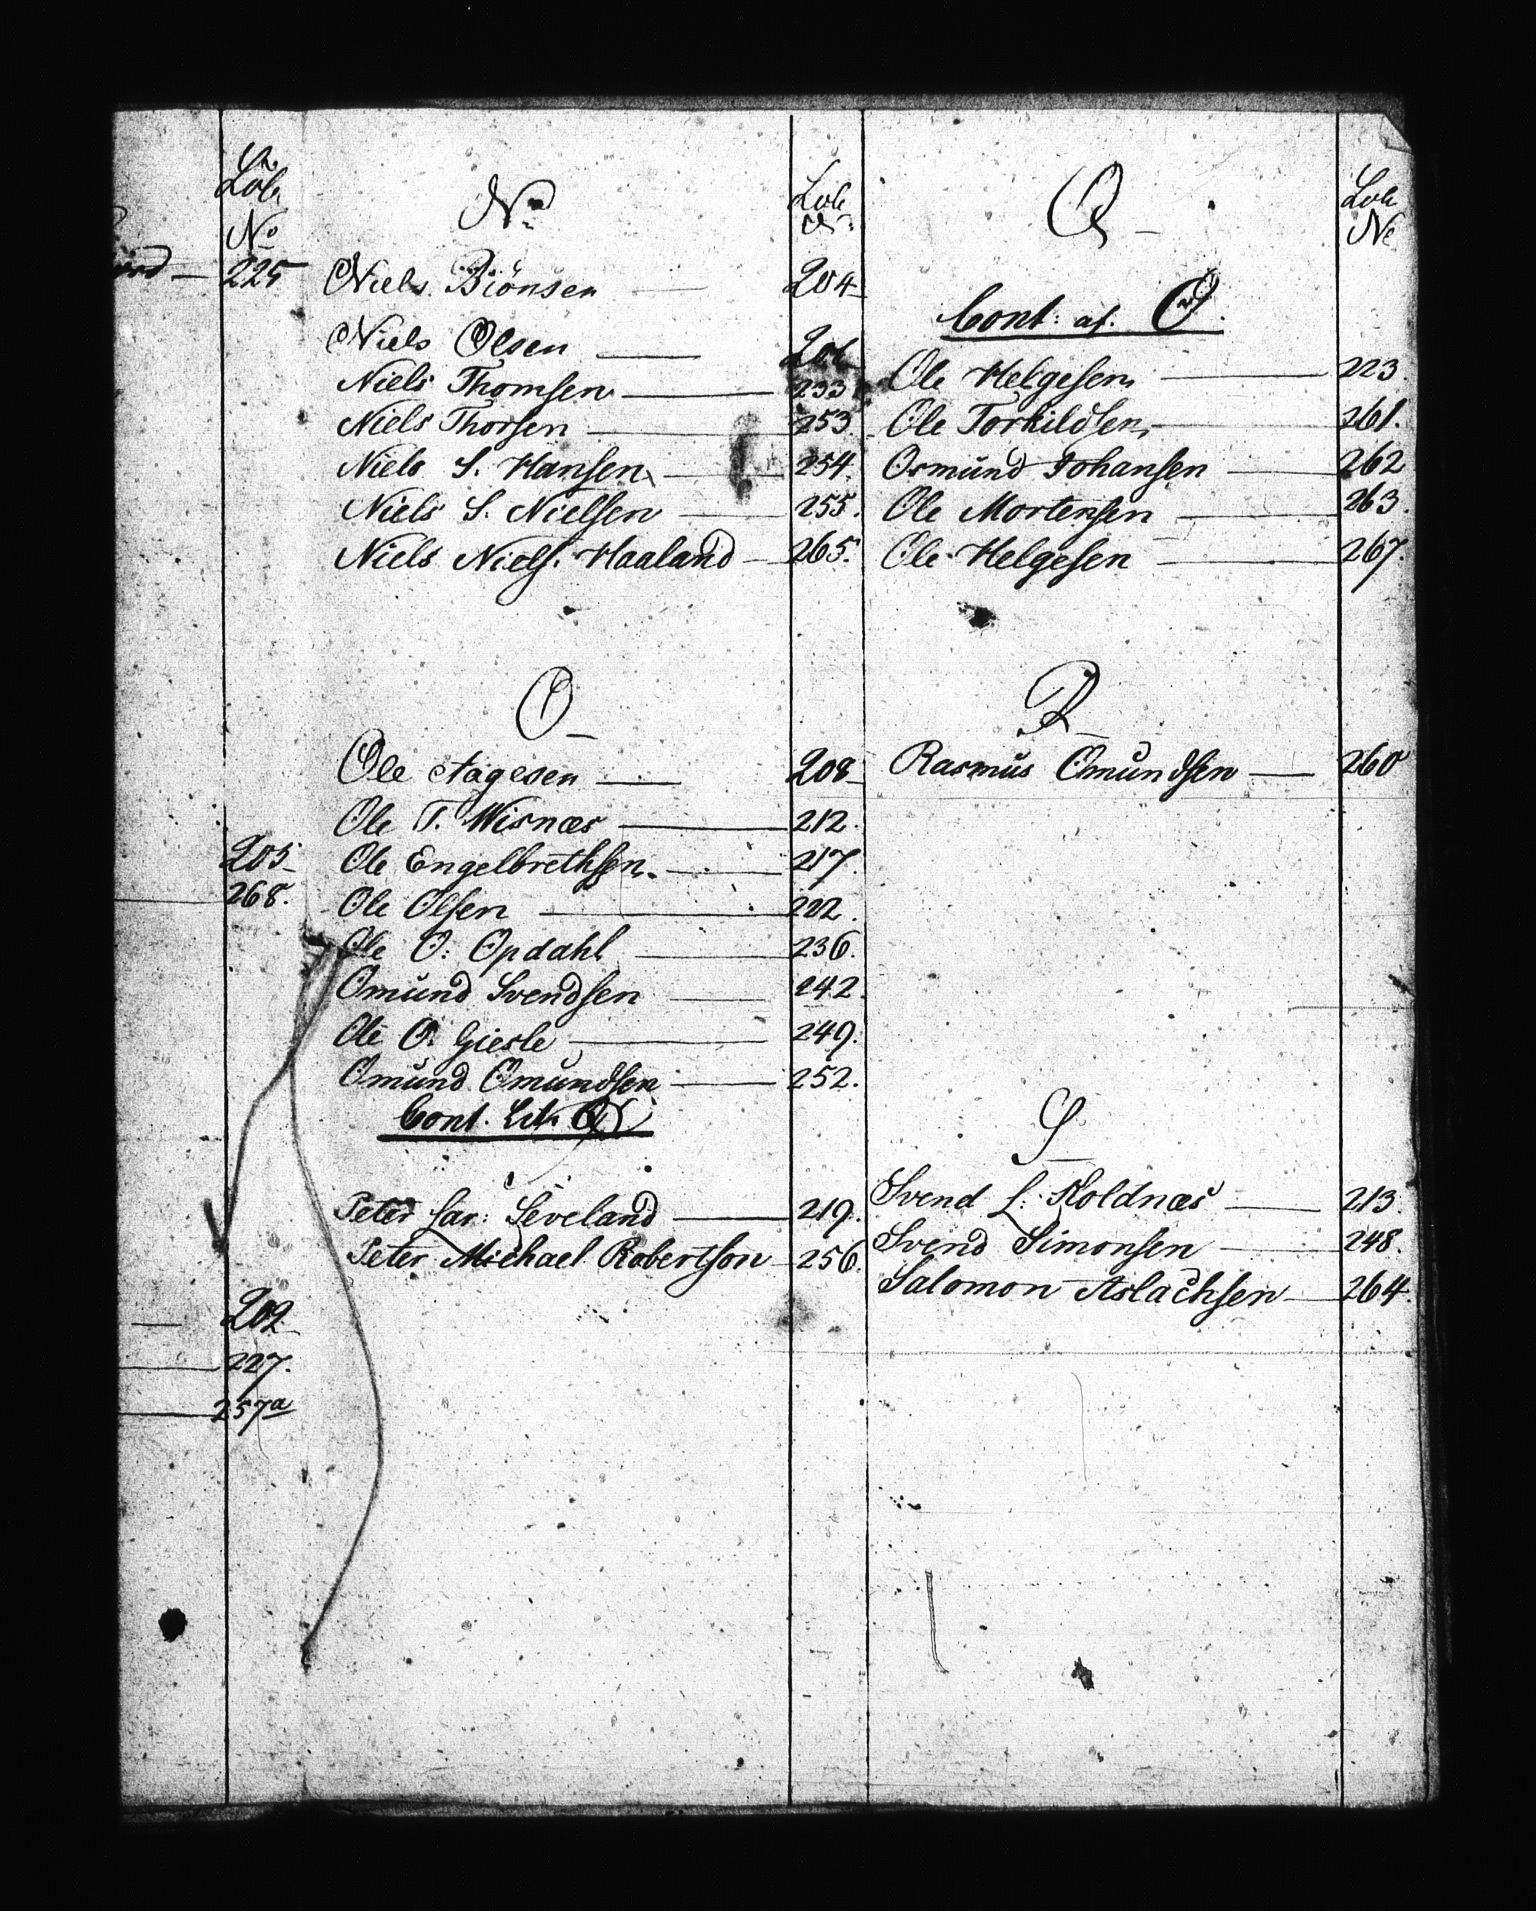 Löb.
No
225
205
268.
209
227.
257a
N.
Löb
Niels Biönsen 204
Niels Olsen
Niels Thomsen 233
Niels Thorsen 253
Niels S. Hansen 254.
Niels S. Nielsen 255.
Niels Niels. Haaland 265.
O
Ole Aagesen 208
Ole T. Wisnæs 212.
Ole Engelbrethsen. 217.
Ole Olsen 222.
Ole O: Opdahl 236.
Omund Svendsen 242.
Ole O. Giesle 249.
Omund Omundsen 252.
Cont. Lit. Q
Peter Lar: Seveland 219.
Peter Michael Robertson 256.
Q
Löb
No
Cont: af. O.
Ole Helgesen 223.
Ole Torkildsen 261.
Osmund Johansen 262
Ole Mortensen 263.
Ole Helgesen 267.
R
Rasmus Omundsen 260
S
Svend L: Holdnæs 213.
Svend Simonsen 248.
Salomon Aslachsen 264.